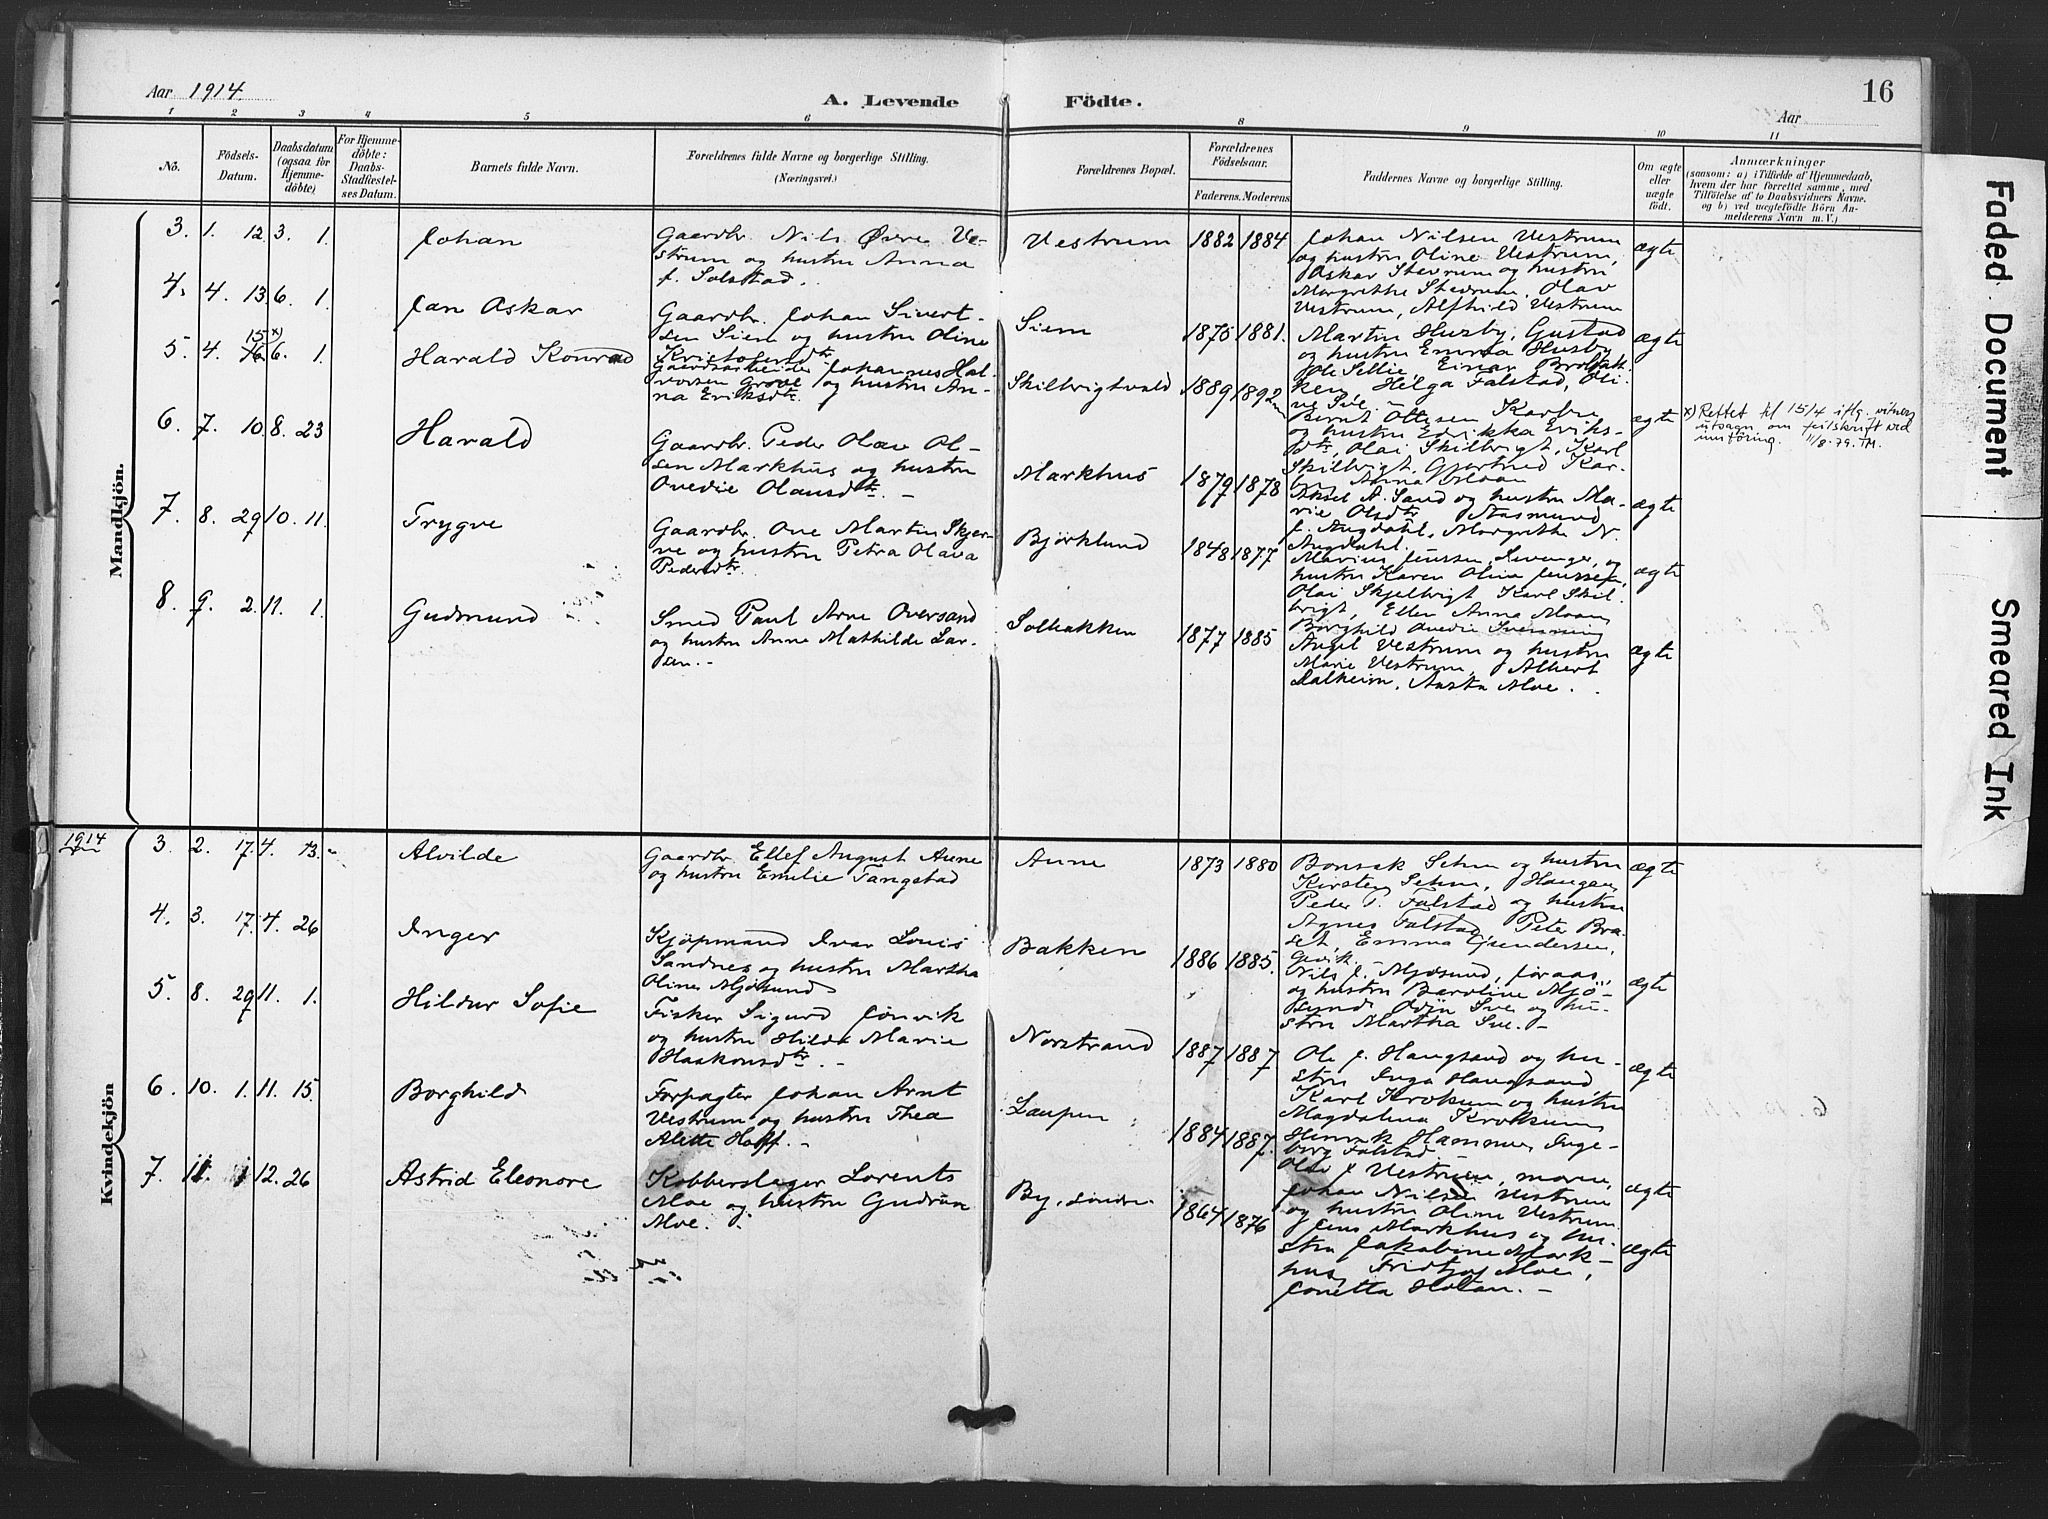 Aar 1914.
A. Levende Födte.
Aar
16
1 2 3 4 5 6 8 9 10 11
No.
Födsels-
Datum.
Daabsdatum
(ogsaa for
Hjemme-
döbte)
For Hjemme-
döbte:
Daabs-
Stadfæstel-
ses Datum.
Barnets fulde Navn.
Forældrenes fulde Navne og borgerlige Stilling.
(Næringsvei.)
Forældrenes Bopæl.
Forældrenes
Födselsaar.
Faderens. Moderens
Faddernes Navne og borgerlige Stilling.
Om ægte
eller
uægte
födt.
Anmærkninger
(saasom: a) i Tilfælde af Hjemmedaab,
hvem der har forrettet samme, med
Tilföielse af to Daabsvidners Navne.
og b) ved uægtefödte Börn An-
melderens Navn m. V.)
Mandkjön.
3. 1. 12. 3. 1.
Johan
Gaardbr. Nils Øvre Ve-
strum og hustru Anna
f. Solstad.
Vestrum
1882 1884
Johan Nilsen Vestrum
og hustru Oline Vestrum,
Oskar Stevrum og hustru
Margrethe Stevrum, Olav
Vestrum, Alfhild Vestrum
ægte
4. 4. 13. 6. 1.
Jan Oskar
Gaardbr. Johan Sivert-
sen Siem og hustru Oline
Kristofersdtr
Siem
1875 1881.
Martin Husby, Gustad
og hustru Emma Husby
Ole Sellie, Einar
Helga Falstad, Oli-
ne Sve.
ægte
5. 4. 15 x) 16. 6. 1.
Harald Konrad
Gaardsarbeider Johannes Hal-
vorsen Grove og hustru An-
na Eriksdtr.
Skilbrigtvald
1889 1892
Bernt Ottesen Karbu
og hustru Erikka Eriks-
dtr, Olai Skilbrigt, Karl
Skilbrigt, Gjertrud Kar-
bu, Anna Moan
ægte
x) Rettet til 15/4 iflg. vitners
utsagn om feilskrift ved
innföring. 11/8-79. TM.
6. 7. 10. 8. 23
Harald
Gaardbr. Peder Olav Ol-
sen Markhus og hustru
Ovedie Olausdtr. -
Markhus
1879 1878
Aksel A. Sand og hustru Ma-
rie Olsdtr Aasmund
J. Augdahl, Margrethe N.
Augdahl.
ægte
7. 8. 29 10. 11.
Trygve
Gaardbr. Ove Martin Skjer-
ve og hustru Petra Olava
Pedersdtr.
Björklund
1848 1877
Marius Jenssen, Levanger, og
hustru Karen Oline Jenssen,
Olai Skjelvrigt Karl Skil-
brigt, Ellen Anna Moan,
Borghild Ovedie Svenning
ægte
8. 9. 2. 11. 1.
Gudmund
Smed Paul Arne Oversand
og hustru Anne Mathilde Lar-
sen. -
Solbakken
1877 1885
Angel Vestrum og hustru
Marie Vestrum, Albert
Dalheim, Aasta Moe.
ægte
Kvindekjön
1914
3. 2. 17. 4. 13.
Alvilde
Gaardbr. Ellef August Aune
og hustru Emilie Tangstad
Aune
1873 1880
Bonsak Sehm og hustru
Kirsten Sehm, Haugan,
Peder T. Falstad og hustru
Agnes Falstad, Peter Bra-
set, Emma Gundersen,
Gjevik.
ægte
4. 3. 17. 4. 26
Inger
Kjöpmand Ivar Louis
Sandnes og hustru Martha
Oline Mjösund
Bakken
1886 1885.
Nils J. Mjösund, Joraas,
og hustru Beroline Mjö-
sund, Odin Sve og hu-
stru Martha Sve. -
ægte
5. 8. 29 11. 1.
Hildur Sofie
Fisker Sigurd Jönvik
og hustru Hilda Marie
Haakonsdtr. -
Norstrand
1887 1887
Ole J. Haugsand og hu-
stru Inga Haugsand,
Karl Krokum og hustru
Magdalena Krokum,
ægte
6. 10. 1. 11. 15.
Borghild
Forpagter Johan Arnt
Vestrum og hustru Thea
Alette Hoff. -
Laupen
1884 1887.
Henrik Hammer, Inge-
borg Falstad.
Olai J. Vestrum,
Johan Nilsen Vestrum
og hustru Oline Vestrum
ægte
7. 11. 1 12. 26
Astrid Eleonore
Kobberslager Lorents
Moe og hustru Gudrun
Moe.
By, söndre
1864 1876
Jens Markhus og hu-
stru Jakobine Mark-
hus, Fridtjof Moe,
Jonetta Holan. -
ægte
Faded Document
Smeared Ink